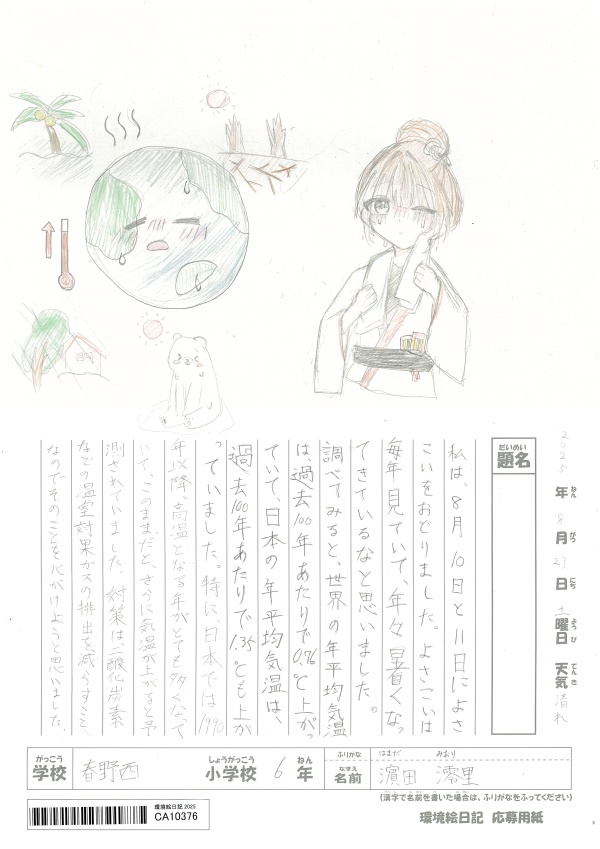 2025年 8月 23日 土曜日 天気 晴れ
ねん がつ にち ようび てんき
だいめい
題名
私は、8月10日と11日によさ
こいをおどりました。よさこいは
毎年見ていて、年々暑くなっ
てきているなと思いました。
調べてみると、世界の年平均気温
は、過去100年あたりで0.76℃上がっ
ていて、日本の年平均気温は、
過去100年あたりで1.35℃も上が
っていました。特に、日本では1990
年以降、高温となる年がとても多くなって
いて、このままだと、さらに気温が上がると予
測されていました。対策は二酸化炭素
などの温室対果ガスの排出を減らすこと
なのでそのことを心がけようと思いました。
がっこう しょうがっこう ねん ふりがな はまだ みおり
学校 春野西 小学校 6年 なまえ 名前 濵田 澪里
(漢字で名前を書いた場合は、ふりがなをふってください)
環境絵日記 2025
CA10376
環境絵日記 応募用紙